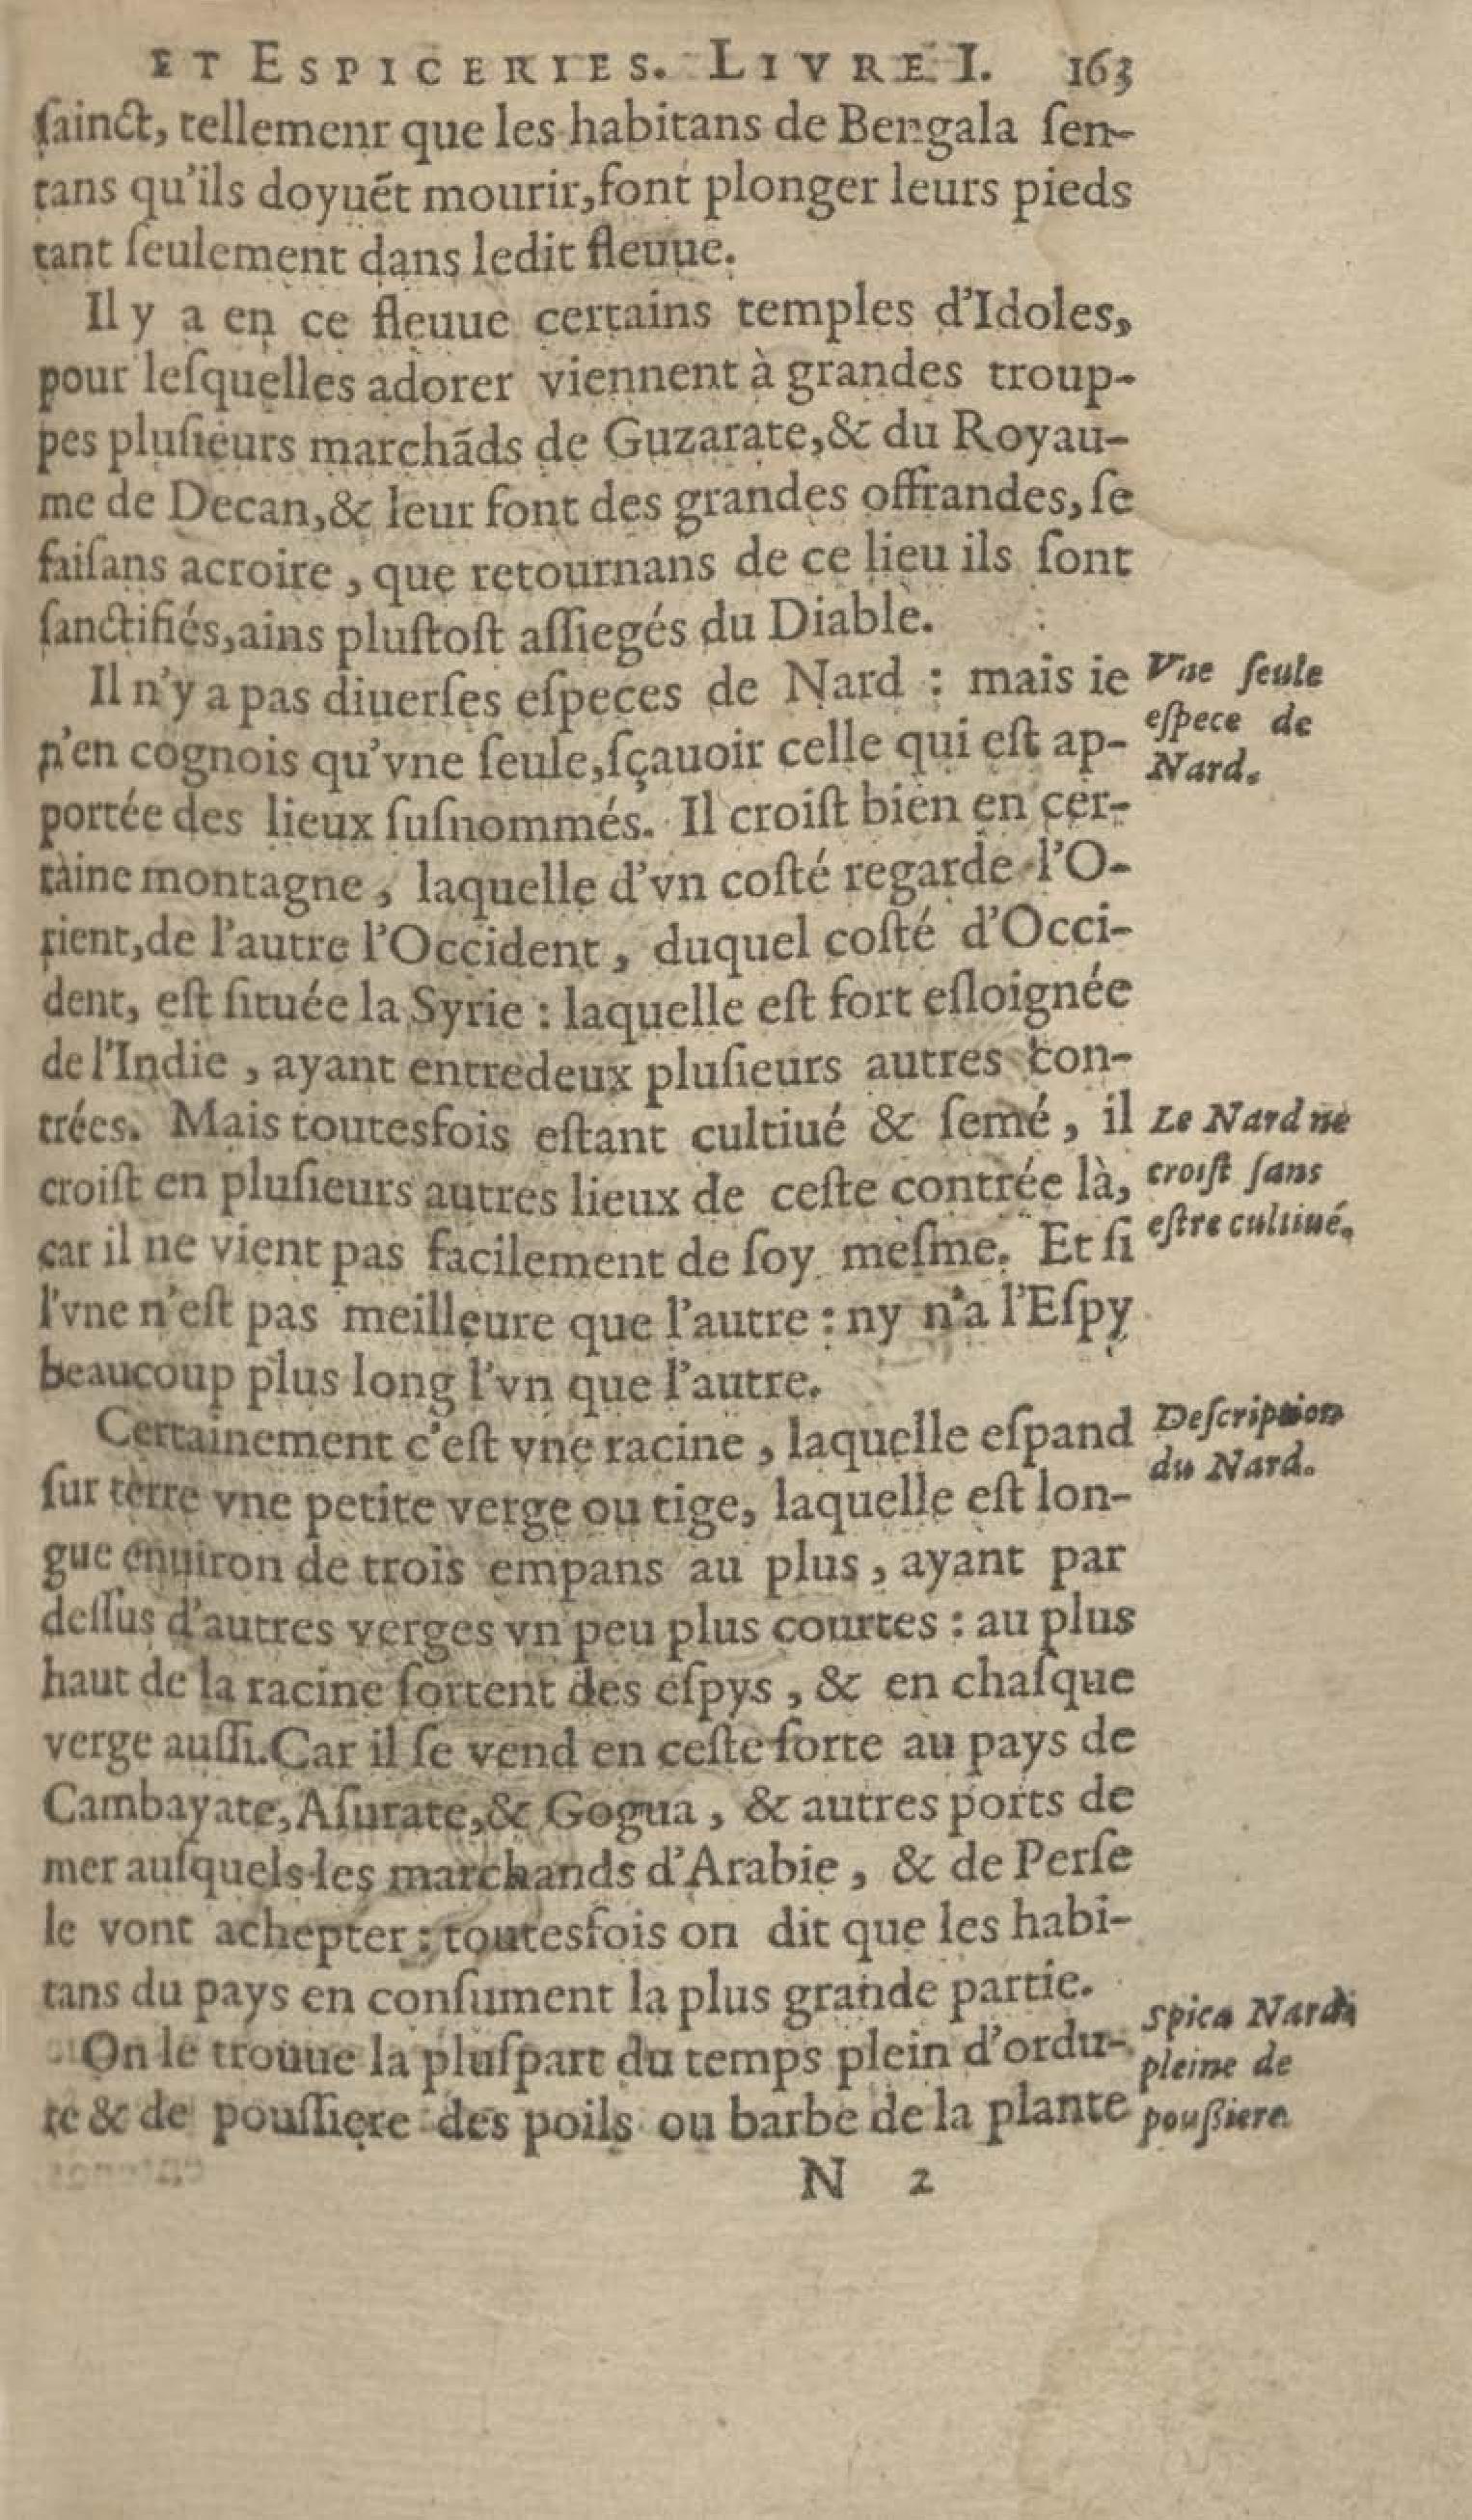 ET ESPICERIES. LIVRE I. 163
ſainct, tellemenr que les habitans de Bengala ſen-
tans qu'ils doyuẽt mourir, font plonger leurs pieds
tant ſeulement dans ledit fleuue.
Il y a en ce fleuue certains temples d'Idoles,
pour leſquelles adorer viennent à grandes troup-
pes pluſieurs marchãds de Guzarate, & du Royau-
me de Decan, & leur font des grandes offrandes, ſe
faiſans acroire, que retournans de ce lieu ils ſont
ſanctifiés, ains pluſtoſt aſſiegés du Diable.
Il n'y a pas diuerſes eſpeces de Nard : mais ie
n'en cognois qu'vne ſeule, ſçauoir celle qui eſt ap-
portée des lieux ſuſnommés. Il croiſt bien en cer-
taine montagne, laquelle d'vn coſté regarde l'O-
rient, de l'autre l'Occident, duquel coſté d'Occi-
dent, eſt ſituée la Syrie : laquelle eſt fort eſloignée
de l'Indie, ayant entredeux pluſieurs autres con-
trées. Mais toutesfois eſtant cultiué & ſemé, il
croiſt en pluſieurs autres lieux de ceſte contrée là,
car il ne vient pas facilement de ſoy meſme. Et ſi
l'vne n'eſt pas meilleure que l'autre : ny n'a l'Eſpy
beaucoup plus long l'vn que l'autre.
Certainement c'eſt vne racine, laquelle eſpand
ſur terre vne petite verge ou tige, laquelle eſt lon-
gue enuiron de trois empans au plus, ayant par
deſſus d'autres verges vn peu plus courtes : au plus
haut de la racine ſortent des eſpys, & en chaſque
verge auſſi. Car il ſe vend en ceſte ſorte au pays de
Cambayate, Aſurate, & Gogua, & autres ports de
mer auſquels les marchands d'Arabie, & de Perſe
le vont achepter : toutesfois on dit que les habi-
tans du pays en conſument la plus grande partie.
On le trouue la pluſpart du temps plein d'ordu-
re & de pouſſiere des poils ou barbe de la plante
N 2
Vne ſeule
eſpece de
Nard.
Le Nard ne
croiſt ſans
eſtre cultiué.
Deſcription
du Nard.
Spica Nardi
pleine de
pouſsiere